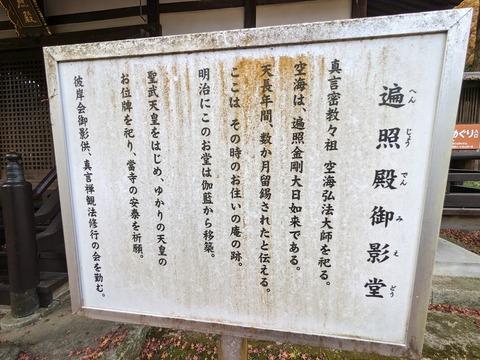 遍照殿御影堂
へんじょうでんみえどう
真言密教々祖 空海弘法大師を祀る。
空海は、遍照金剛大日如来である。
天長年間、数か月留錫されたと伝える。
ここは その時のお住いの庵の跡。
明治にこのお堂は伽藍から移築。
聖武天皇をはじめ、ゆかりの天皇の
お位牌を祀り、當寺の安泰を祈願。
彼岸会御影供、真言禅観法修行の会を勤む。